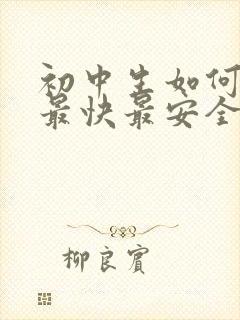 初中生如何
最快最安全
柳良宾